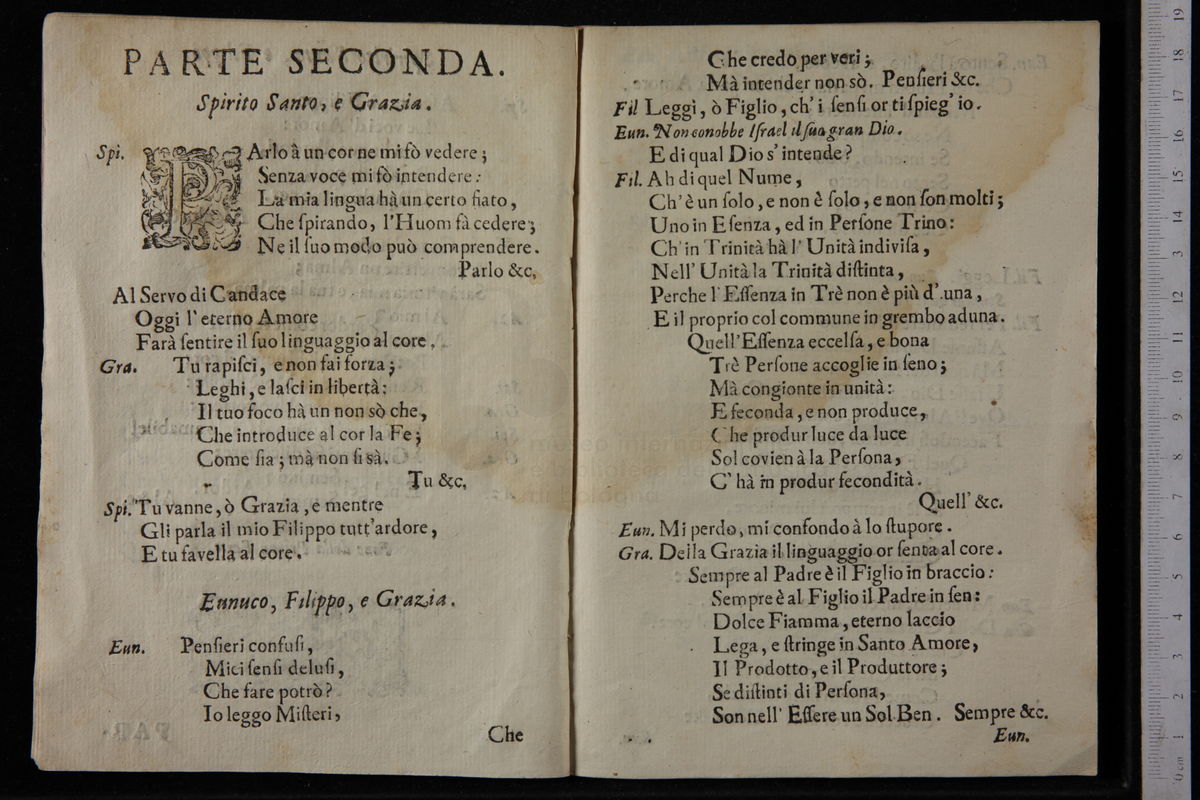 PARTE SECONDA.
Spirito Santo, e Grazia.
Spi. PArlo à un cor ne mi fò vedere;
Senza voce mi fò intendere:
La mia lingua hà un certo fiato,
Che ſpirando, l'Huom fà cedere;
Ne il ſuo modo può comprendere.
Parlo &c,
Al Servo di Candace
Oggi l'eterno Amore
Farà ſentire il ſuo linguaggio al core,
Gra. Tu rapiſci, e non fai forza;
Leghi, e laſci in libertà:
Il tuo foco hà un non sò che,
Che introduce al cor la Fe;
Come ſia; mà non ſi sà.
Tu &c,
Spi. Tu vanne, ò Grazia, e mentre
Gli parla il mio Filippo tutt'ardore,
E tu favella al core.
Eunuco, Filippo, e Grazia.
Eun. Penſieri confuſi,
Miei ſenſi deluſi,
Che fare potrò?
Io leggo Miſteri,
Che
Che credo per veri;
Mà intender non sò. Penſieri &c.
Fil Leggi, ò Figlio, ch'i ſenſi or ti ſpieg'io.
Eun. Non conobbe Iſrael il ſuo gran Dio.
E di qual Dio s'intende?
Fil. Ah di quel Nume,
Ch'è un ſolo, e non è ſolo, e non ſon molti;
Uno in Eſenza, ed in Perſone Trino:
Ch'in Trinità hà l'Unità indiviſa,
Nell'Unità la Trinità diſtinta,
Perche l'Eſſenza in Trè non è più d'una,
E il proprio col commune in grembo aduna.
Quell'Eſſenza eccelſa, e bona
Trè Perſone accoglie in ſeno;
Mà congionte in unità:
E feconda, e non produce,
Che produr luce da luce
Sol covien à la Perſona,
C'hà in produr fecondità.
Quell' &c.
Eun. Mi perdo, mi confondo à lo ſtupore.
Gra. Della Grazia il linguaggio or ſenta al core.
Sempre al Padre è il Figlio in braccio:
Sempre è al Figlio il Padre in ſen:
Dolce Fiamma, eterno laccio
Lega, e ſtringe in Santo Amore,
Il Prodotto, e il Produttore;
Se diſtinti di Perſona,
Son nell' Eſſere un Sol Ben. Sempre &c.
Eun.
0 cm 1 2 3 4 5 6 7 8 9 10 11 12 13 14 15 16 17 18 19